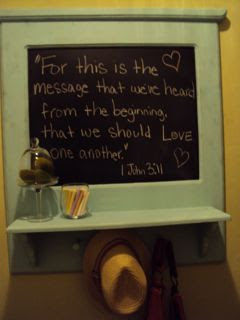 "For this is the
message that we've heard
from the beginning,
that we should LOVE
one another."
1 John 3:11